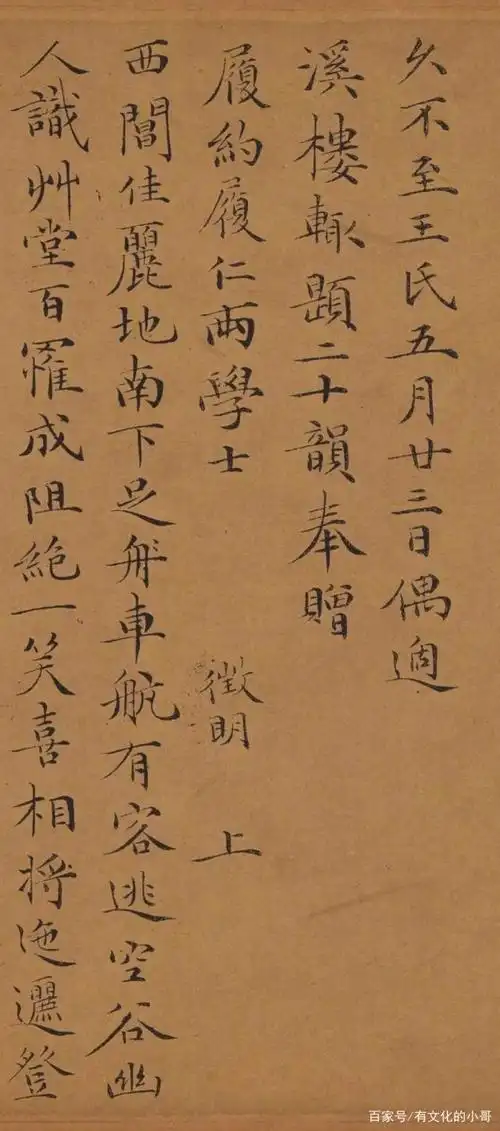 久不至王氏五月廿三日偶過
溪樓輒題二十韻奉贈
履約履仁兩學士 徵明 上
西閶佳麗地南下足舟車航有客逃空谷幽
人識艸堂百罹成阻絶一笑喜相將迤邐登
百家号/有文化的小哥